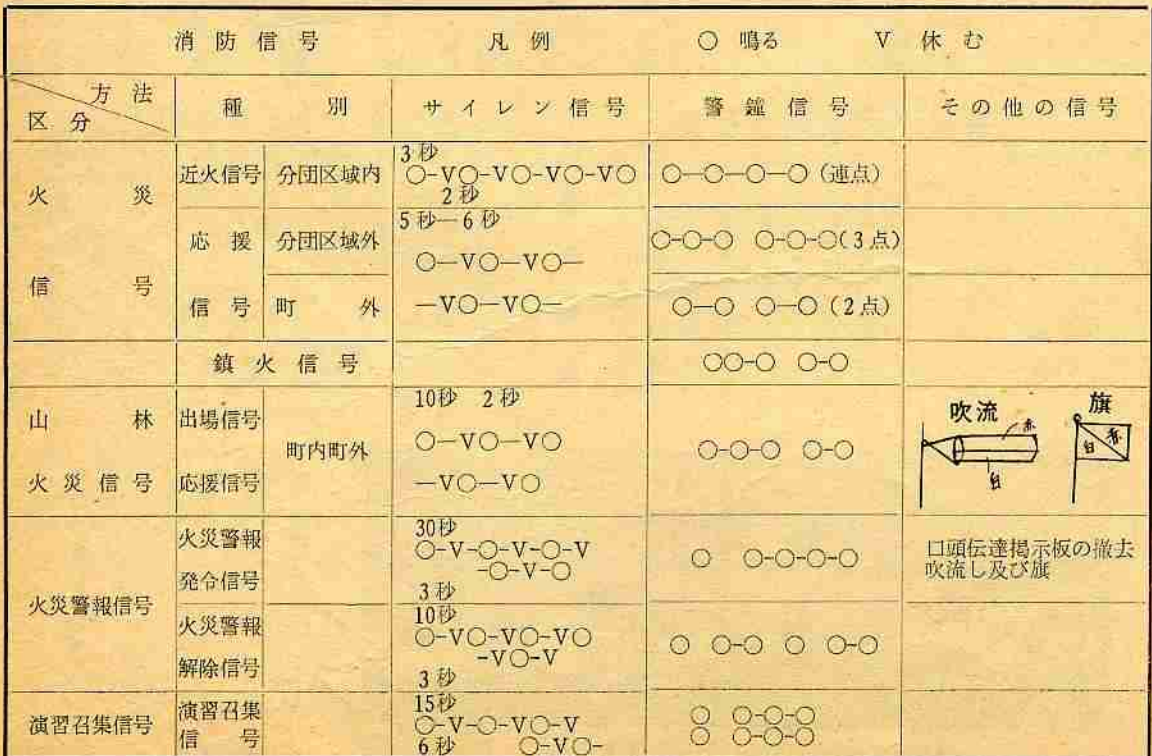 消防信号 凡例 ○ 鳴る V 休む
方法
区分 種別 サイレン信号 警鐘信号 その他の信号
火災信号
近火信号 分団区域内
3秒
○-VO-VO-VO-VO
2秒
○-○-○-○(連点)
応援信号
分団区域外
5秒-6秒
○-VO-VO-
○-○-○ ○-○-○(3点)
町外
-VO-VO-
○-○ ○-○(2点)
鎮火信号
○○-○ ○-○
山林火災信号
出場信号
応援信号
町内町外
10秒 2秒
○-VO-VO
-VO-VO
○-○-○ ○-○
吹流 旗
赤
白
白 赤
火災警報信号
火災警報
発令信号
30秒
○-V-○-V-○-V
-○-V-○
3秒
○ ○-○-○-○
口頭伝達掲示板の撤去
吹流し及び旗
火災警報
解除信号
10秒
○-VO-VO-VO
-VO-V
3秒
○ ○-○ ○ ○-○
演習召集信号
演習召集
信号
15秒
○-V-○-VO-V
6秒 ○-VO-
○ ○-○-○
○ ○-○-○